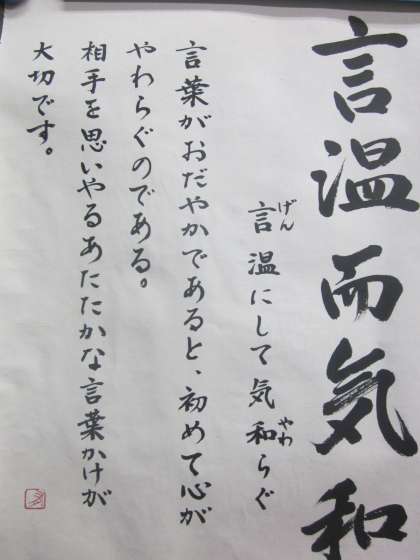 言温而気和
言温にして気和らぐ
げん
やわ
言葉がおだやかであると、初めて心が
やわらぐのである。
相手を思いやるあたたかな言葉かけが
大切です。